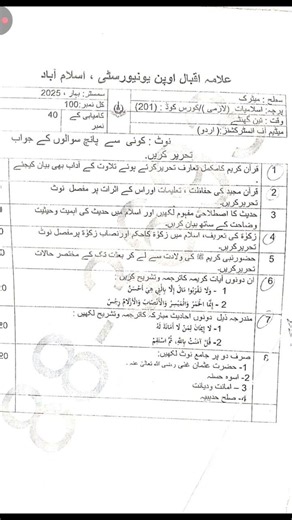 علامہ اقبال اوپن یونیورسٹی ، اسلام آباد
سطح : میٹرک
سمسٹر: بہار ، 2025
پرچہ: اسلامیات (لازمی)//کورس کوڈ : (201)
کل نمبر: 100
وقت : تین گھنٹے
کامیابی کے نمبر 40
میڈیم آف انسٹرکشنز: (اردو)
نوٹ : کوئی سے پانچ سوالوں کے جواب تحریر کریں۔
1 قرآن کریم کامکمل تعارف تحریرکرتے ہوئے تلاوت کے آداب بھی بیان کیجئے
2 قرآن مجید کی حفاظت ، تعلیمات اوراس کے اثرات پر مفصل نوٹ
تحریرکریں۔
3 حدیث کا اصطلاحی مفہوم لکھیں اور اسلام میں حدیث کی اہمیت وحیثیت
وضاحت کے ساتھ بیان کریں۔
4 زکوٰۃ کی تعریف، اسلام میں زکوٰۃ کاحکم اورنصاب زکوٰۃ پرمفصل نوٹ
تحریرکریں۔
5 حضورنبی کریم ﷺ کی ولادت سے لے کر بعثت تک کے مختصر حالات
تحریرکریں۔
6 ان دونوں آیات کریمہ کاترجمہ وتشریح کریں :
1 - وَلَا تَقْرَبُوْا مَالَ إِلَّا بِالَّتِي هِيَ أَحْسَنُ
2 - إِنَّمَا الْخَمْرُ وَالْمَيْسِرُ وَالْأَنْصَابُ وَالْأَزْلَامُ رِجْسٌ
7 مندرجہ ذیل دونوں احادیث مبارکہ کاترجمہ وتشریح لکھیں:
1 - لَا إِيمَانَ لِمَنْ لَا أَمَانَةَ لَهُ
2 - قُلْ آمَنْتُ بِاللَّهِ، ثُمَّ اسْتَقِمْ
8 صرف دو پر جامع نوٹ لکھیں:
1- حضرت عثمان غنی رضی اللہ تعالیٰ عنہ
2- اسوہ حسنہ
3 – امانت ودیانت
4- صلح حدیبیہ